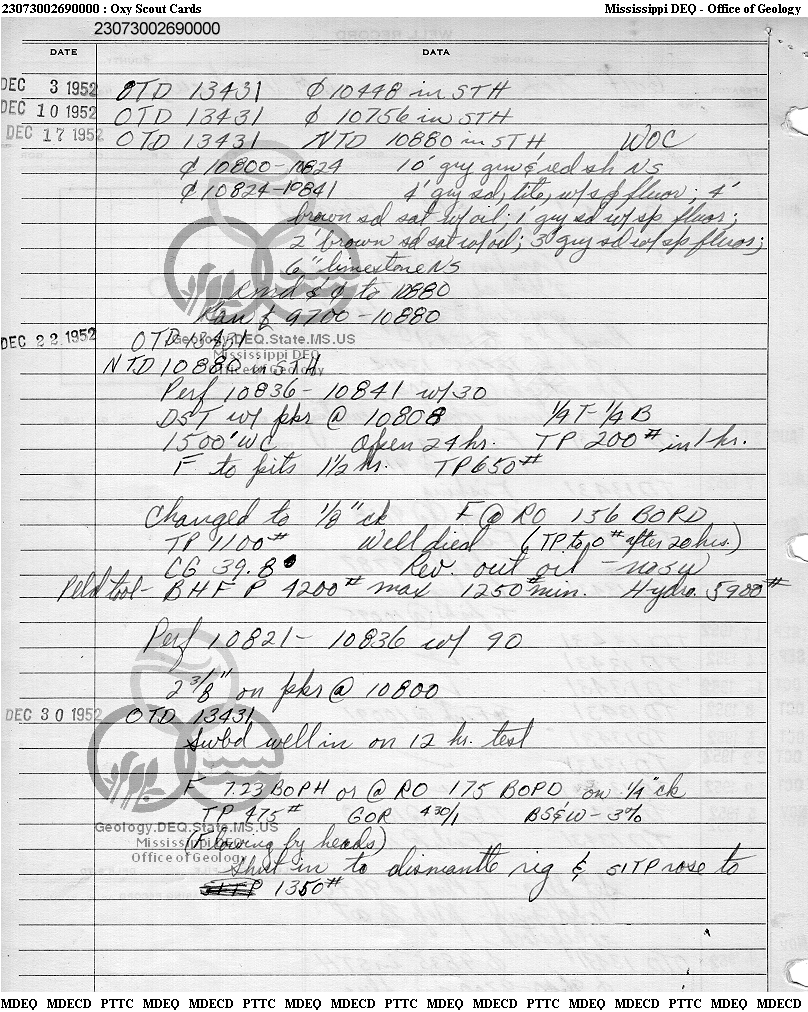 23073002690000 : Oxy Scout Cards Mississippi DEQ - Office of Geology
23073002690000
DATE DATA
DEC 3 1952 OTD 13431 ¢ 10448 in STH
DEC 10 1952 OTD 13431 ¢ 10756 in STH
DEC 17 1952 OTD 13431 NTD 10880 in STH WOC
¢ 10800-10824 10' gry grn & red sh NS
¢ 10824-10841 4' gry sd, tite, w/ sp fluor; 4'
brown sd sat w/ oil; 1' gry sd w/ sp fluor;
2' brown sd sat w/ oil; 3' gry sd w/ sp fluor;
6" limestone NS
Rmd & ¢ to 10880
Ran 9700-10880
DEC 22 1952 OTD 13431
Geology.DEQ.State.MS.US
Mississippi DEQ
Office of Geology
NTD 10880 in STH
Perf 10836-10841 w/ 30
DST w/ pkr @ 10808 1/4 T-1/4 B
1500' WC Open 24 hr. TP 200# in 1 hr.
F to pits 1 1/2 hr. TP 650#
Changed to 1/8" ck F @ RO 156 BOPD
TP 1100# Well died (TP to 0# after 20 hrs.)
CG 39.8 Rev. out oil -
Pld tool- BHFP 4200# max 1250# min. Hydro. 5900#
Perf 10821-10836 w/ 90
2 3/8" on pkr @ 10800
DEC 30 1952 OTD 13431
Swbd well in on 12 hr. test
F 7.23 BOPH or @ RO 175 BOPD on 1/4" ck
TP 475# GOR 430/1 BS&W-3%
Geology.DEQ.State.MS.US
(Flowing by heads)
Mississippi DEQ
Office of Geology
Shut in to dismantle rig & SITP rose to
1350#
MDEQ MDECD PTTC MDEQ MDECD PTTC MDEQ MDECD PTTC MDEQ MDECD PTTC MDEQ MDECD PTTC MDEQ MDECD